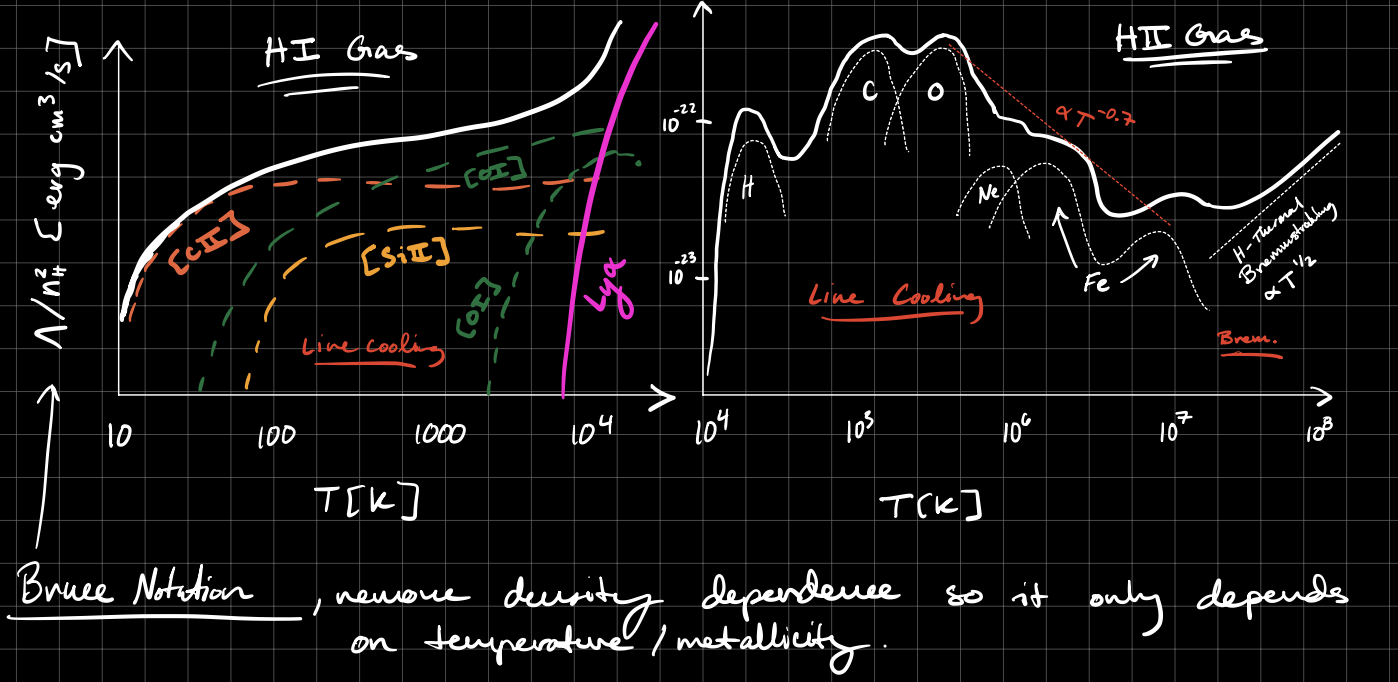 HI Gas
Λ/n²_H [erg cm³/s]
[CII]
[OI]
[SiII]
[OI]
Lyα
Line cooling
10 100 1000 10⁴
T[K]
HII Gas
10⁻²²
10⁻²³
H
C
O
∝ T⁻⁰·⁷
Ne
Fe
H-Thermal
∝ T^1/2
Line Cooling
Brem.
10⁴ 10⁵ 10⁶ 10⁷ 10⁸
T[K]
Bruce Notation, remove density dependence so it only depends
on temperature/metallicity.